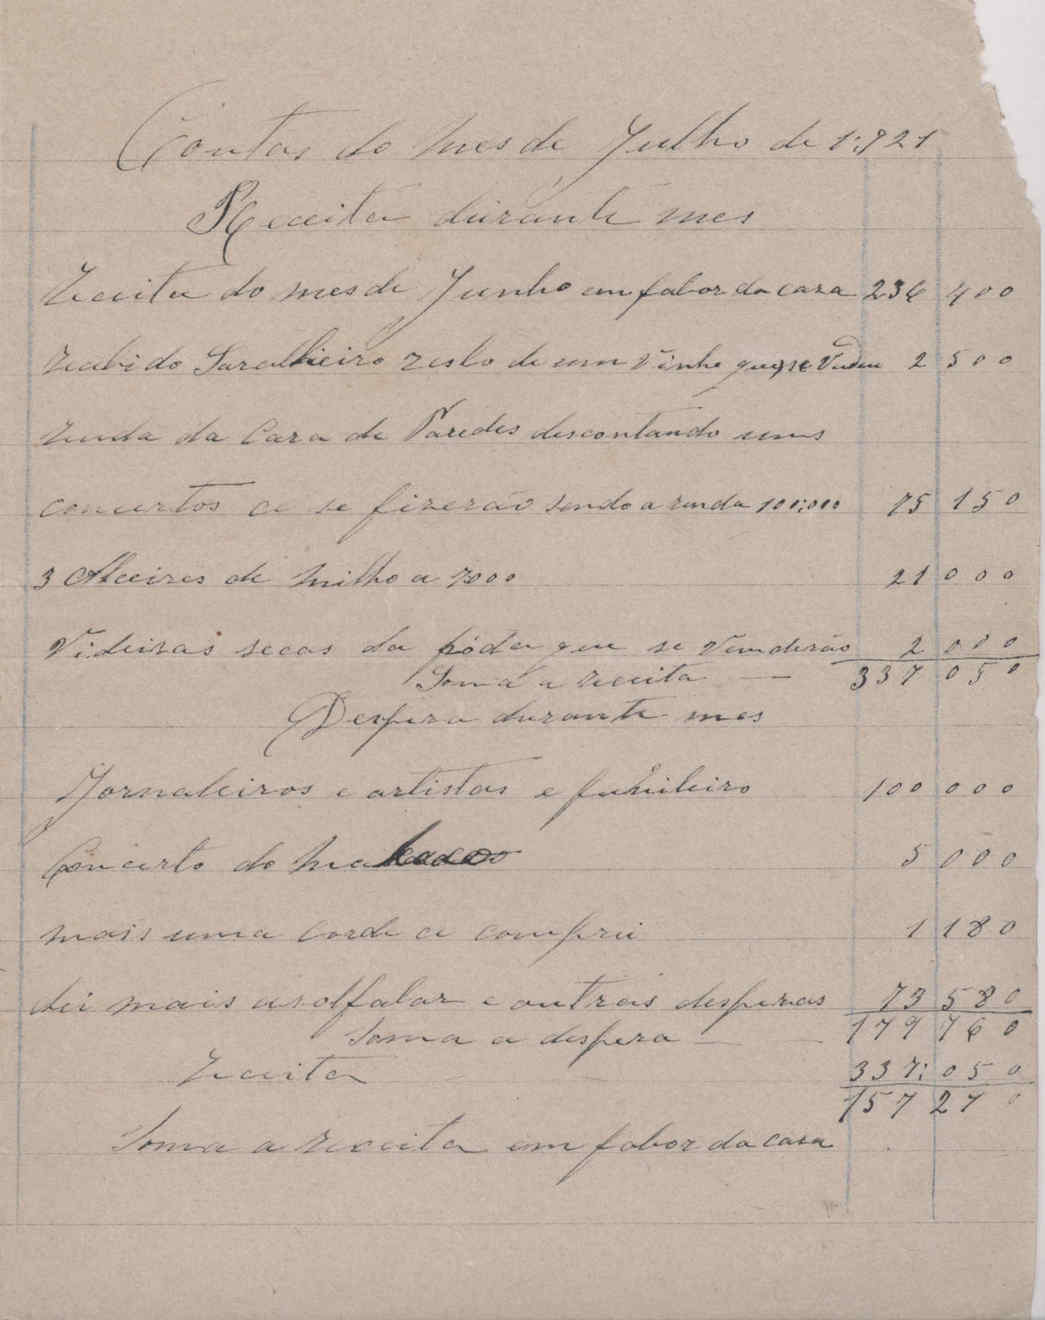 Contas do mes de Julho de 1:921
Receita durante mes
Receita do mes de Junho em fabor da caza 236 400
Recebi do resto de um Vinho que se Vendeu 2 500
renda da Caza de Paredes descontando uns
concertos ce se fizerão sendo a renda 100:000 75 150
3 Alceires de milho a 7000 21 000
Videiras secas da póda que se Venderão 2 000
Soma a receita — 337 050
Despeza durante mes
Jornaleiros e artistas e funileiro 100 000
Concerto do 5 000
mais uma corda ce comprei 1 180
dei mais e outras despezas 73 580
Soma a despeza — 179 760
Receita 337: 050
157 27
Soma a receita em fabor da caza